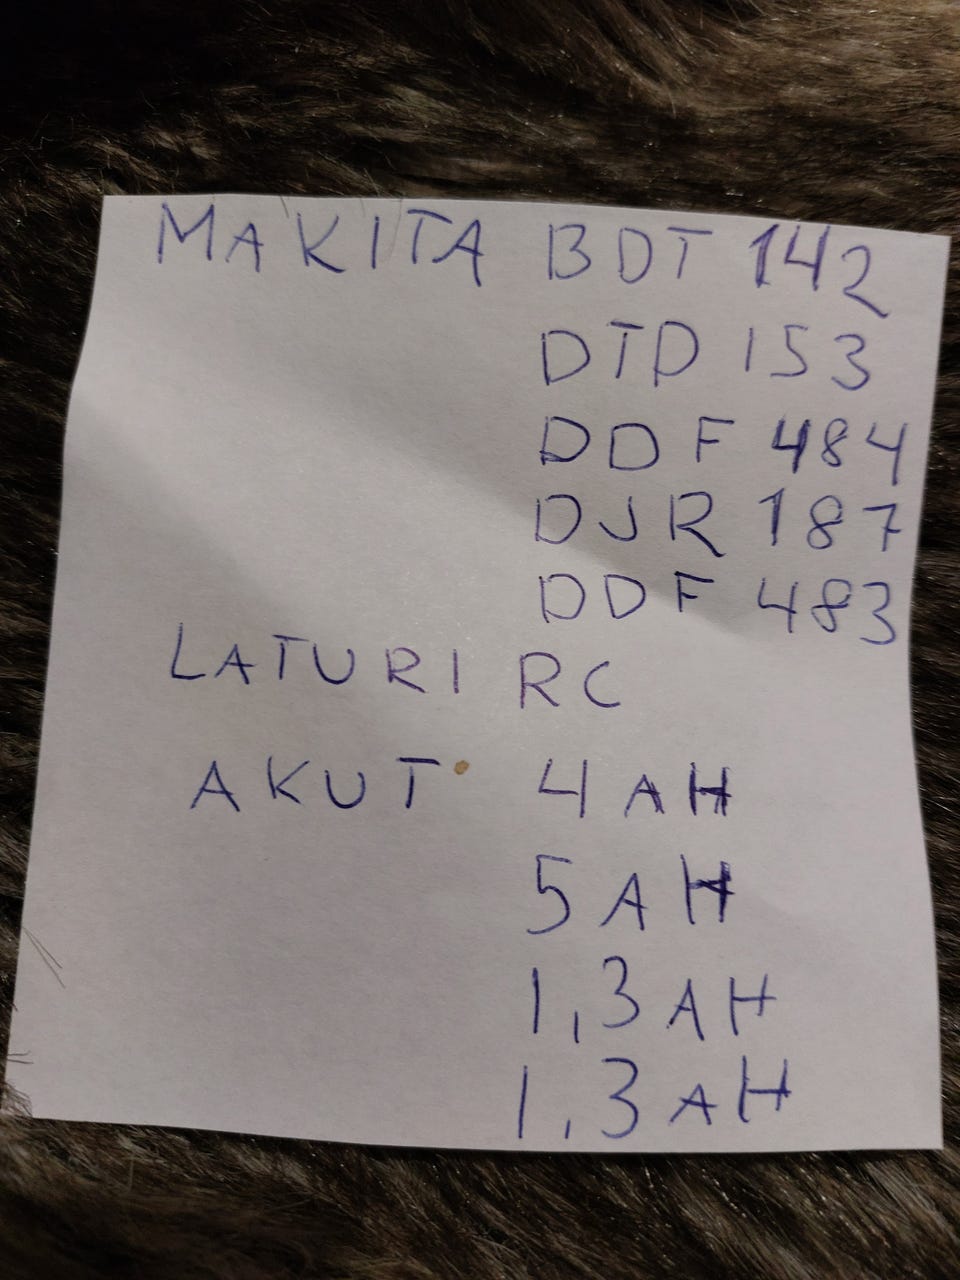 MAKITA BDT 142
DTD 153
DDF 484
DJR 187
DDF 483
LATURI RC
AKUT 4 AH
5 AH
1,3 AH
1,3 AH